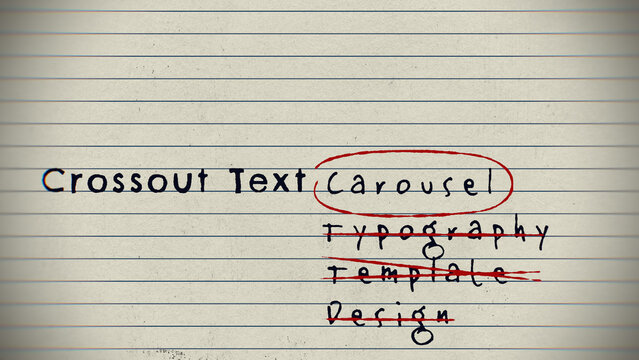 Crossout Text Carousel
Typography
Template
Design